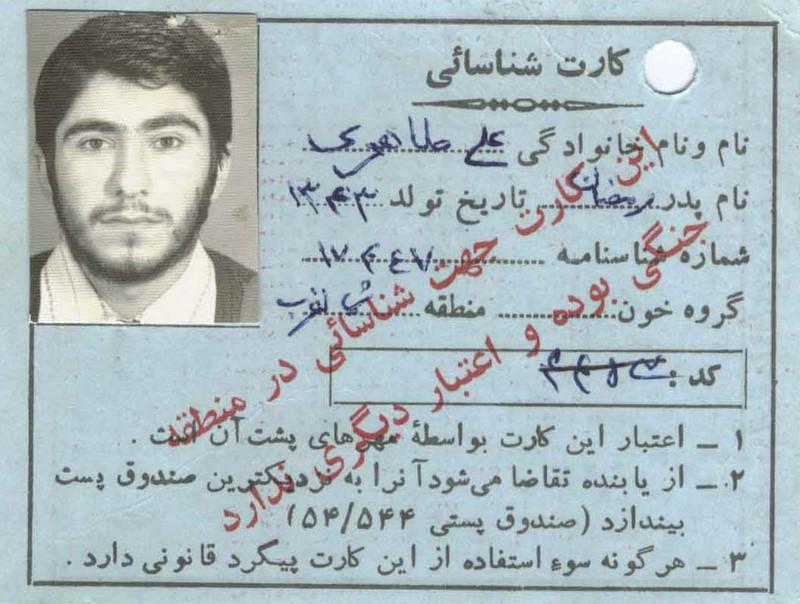 کارت شناسائی
نام ونام خانوادگی علی طاهری
نام پدر رمضان تاریخ تولد ۱۳۴۳
شماره شناسنامه
گروه خون منطقه
کد:
۱ – اعتبار این کارت بواسطهٔ مهرهای پشت آن است .
۲ – از یابنده تقاضا می‌شود آنرا به نزدیکترین صندوق پست
بیندازد (صندوق پستی ۵۴/۵۴۴)
۳ – هرگونه سوء استفاده از این کارت پیگرد قانونی دارد .
این کارت جهت شناسائی در منطقه
جنگی بوده و اعتبار دیگری ندارد